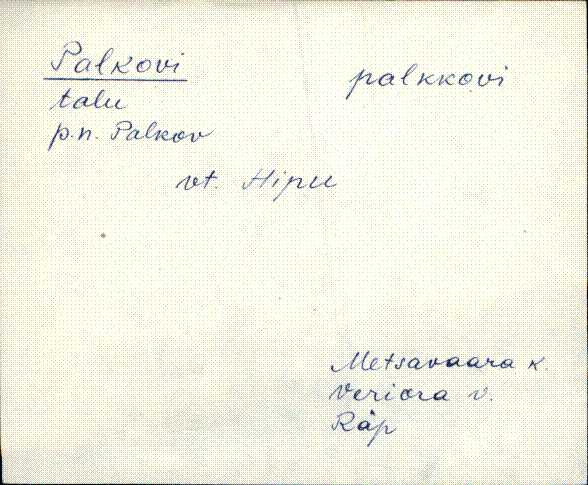 Palkovi
palkkovi
talu
p.n. Palkov
vt. Hipu
Metsavaara k.
Veriora v.
Räp